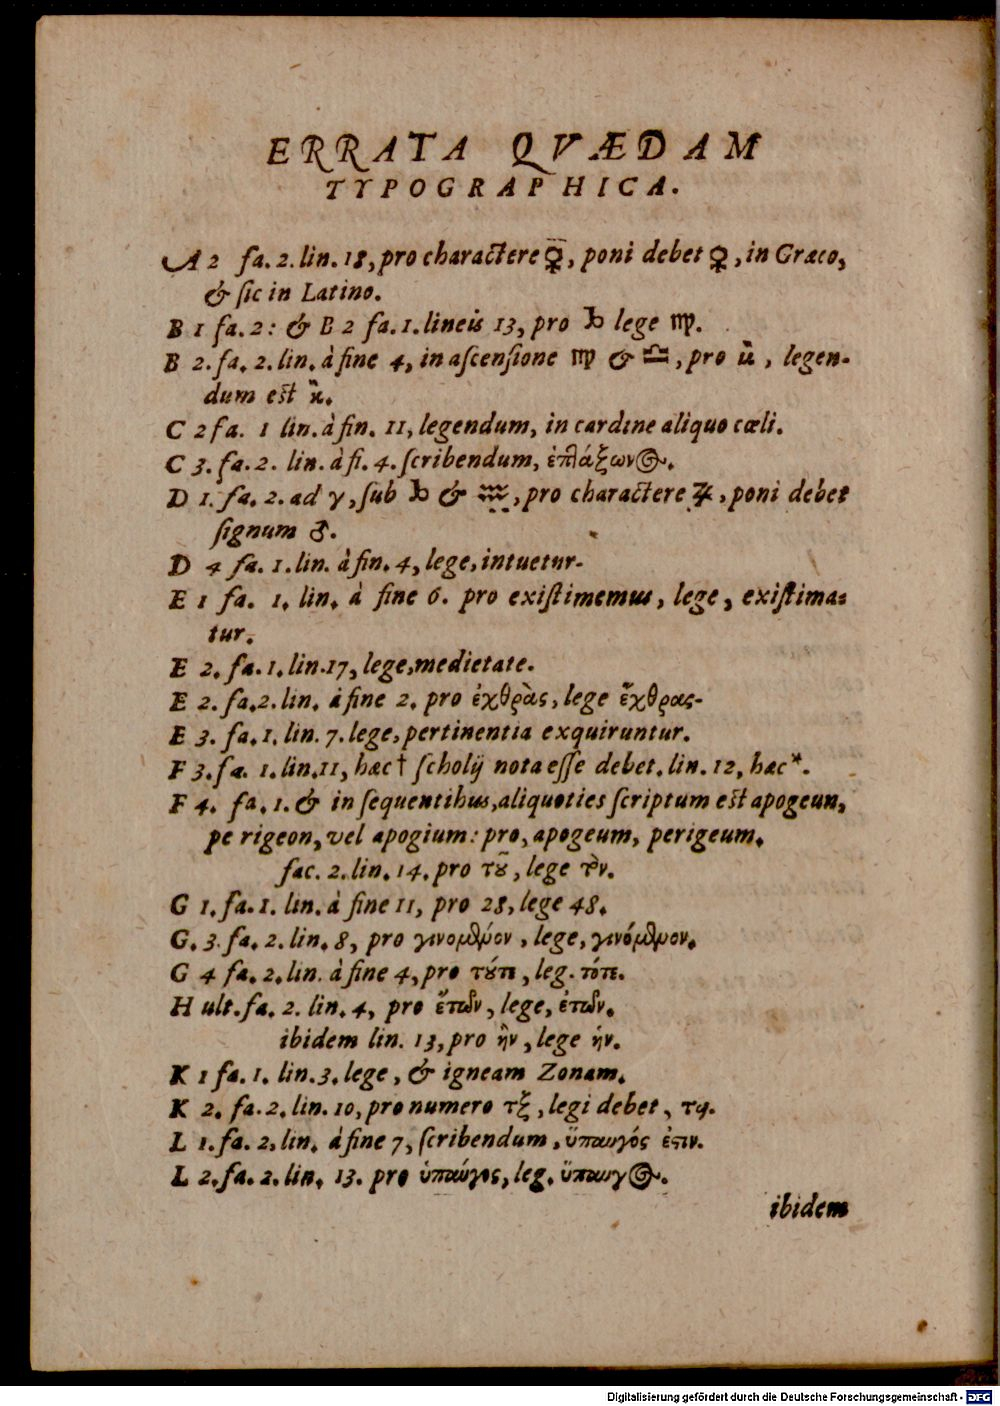 ERRATA QVÆDAM
TYPOGRAPHICA.
A 2 fa. 2. lin. 18, pro charactere ♀, poni debet ♀, in Græco,
& ſic in Latino.
B 1 fa. 2: & B 2 fa. 1. lineis 13, pro ♄ lege ♍.
B 2. fa. 2. lin. à fine 4, in aſcenſione ♍ & ♎, pro ἢ, legen-
dum est
C 2 fa. 1 lin. à fin. 11, legendum, in cardine aliquo cœli.
C 3. fa. 2. lin. à fi. 4. ſcribendum,
D 1. fa. 2. ad γ, ſub ♄ & ♒, pro charactere ♃, poni debet
ſignum ♂.
D 4 fa. 1. lin. à fin. 4, lege, intuetur.
E 1 fa. 1. lin. à fine 6. pro exiſtimemus, lege, exiſtima-
tur.
E 2. fa. 1. lin. 17, lege, medietate.
E 2. fa. 2. lin. à fine 2. pro ἐχθρὰς, lege ἔχθρας.
E 3. fa. 1. lin. 7. lege, pertinentia exquiruntur.
F 3. fa. 1. lin. 11, hæc † ſcholij nota eſſe debet. lin. 12, hæc *.
F 4. fa. 1. & in ſequentibus, aliquoties ſcriptum est apogeun,
pe rigeon, vel apogium: pro, apogeum, perigeum.
fac. 2. lin. 14. pro τοῦ, lege τὸν.
G 1. fa. 1. lin. à fine 11, pro 28, lege 48.
G. 3. fa. 2. lin. 8, pro γινομένον, lege, γινόμενον.
G 4 fa. 2. lin. à fine 4, pro τούτε, leg. τότε.
H ult. fa. 2. lin. 4, pro ἔτων, lege, ἐτῶν.
ibidem lin. 13, pro ἢν, lege ἡν.
K 1 fa. 1. lin. 3. lege, & igneam Zonam.
K 2. fa. 2. lin. 10, pro numero τξ, legi debet, τϥ.
L 1. fa. 2. lin. à fine 7, ſcribendum, ὕπαυγός ἐστιν.
L 2. fa. 2. lin. 13. pro ὑπαύγος, leg. ὕπαυγος.
ibidem
Digitalisierung gefördert durch die Deutsche Forschungsgemeinschaft - DFG